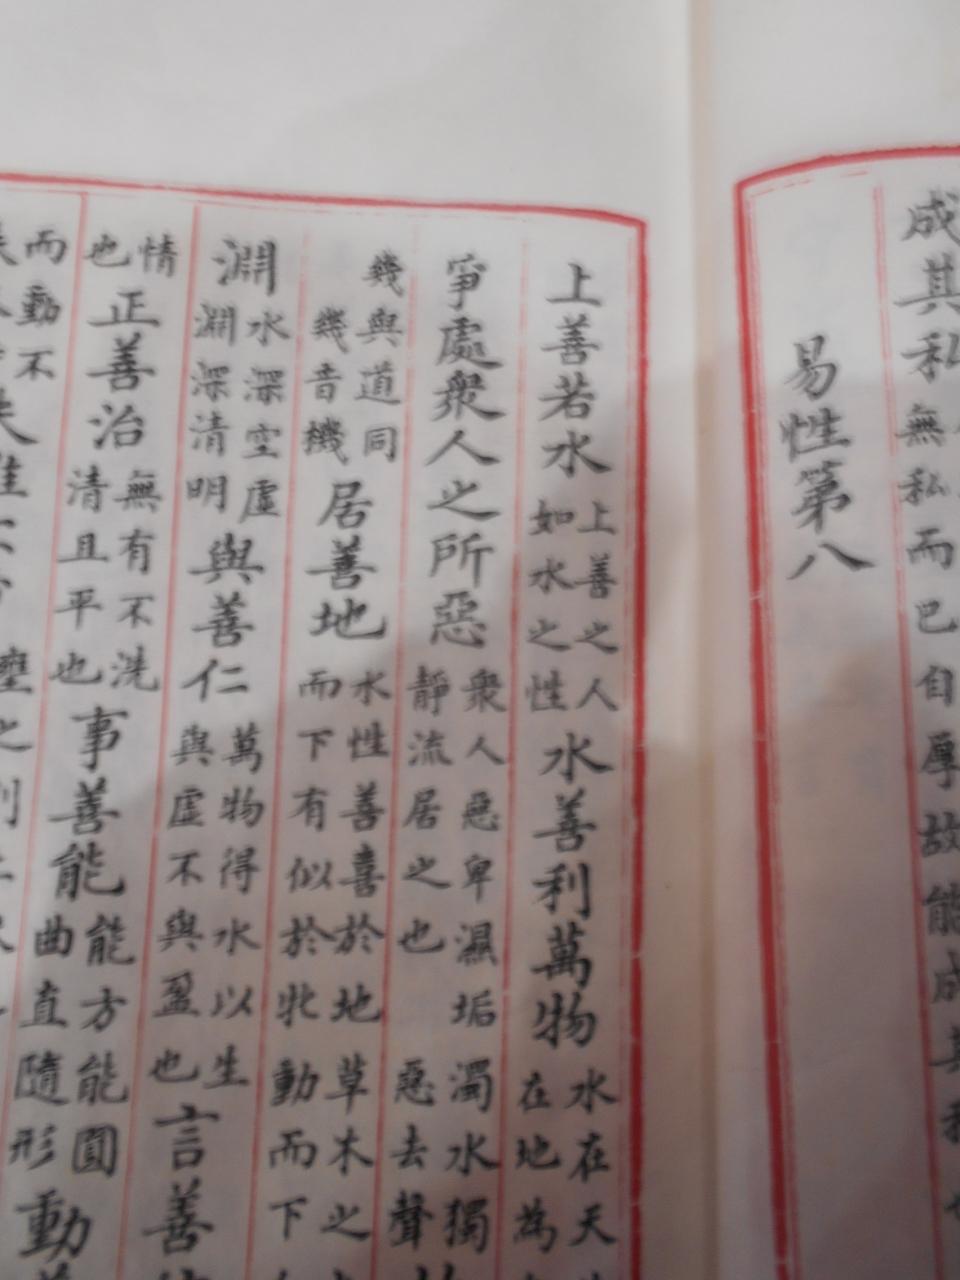 成其私無私而巳自厚故能成其
易性第八
上善若水上善之人如水之性水善利萬物水在天在地為
爭處衆人之所惡衆人惡卑濕垢濁水獨靜流居之也惡去聲
幾與道同幾音機居善地水性善喜於地草木之而下有似於牝動而下
淵水深空虛淵深清明與善仁萬物得水以生與虛不與盈也言善
情也正善治無有不洗清且平也事善能能方能圓曲直隨形動
而動不